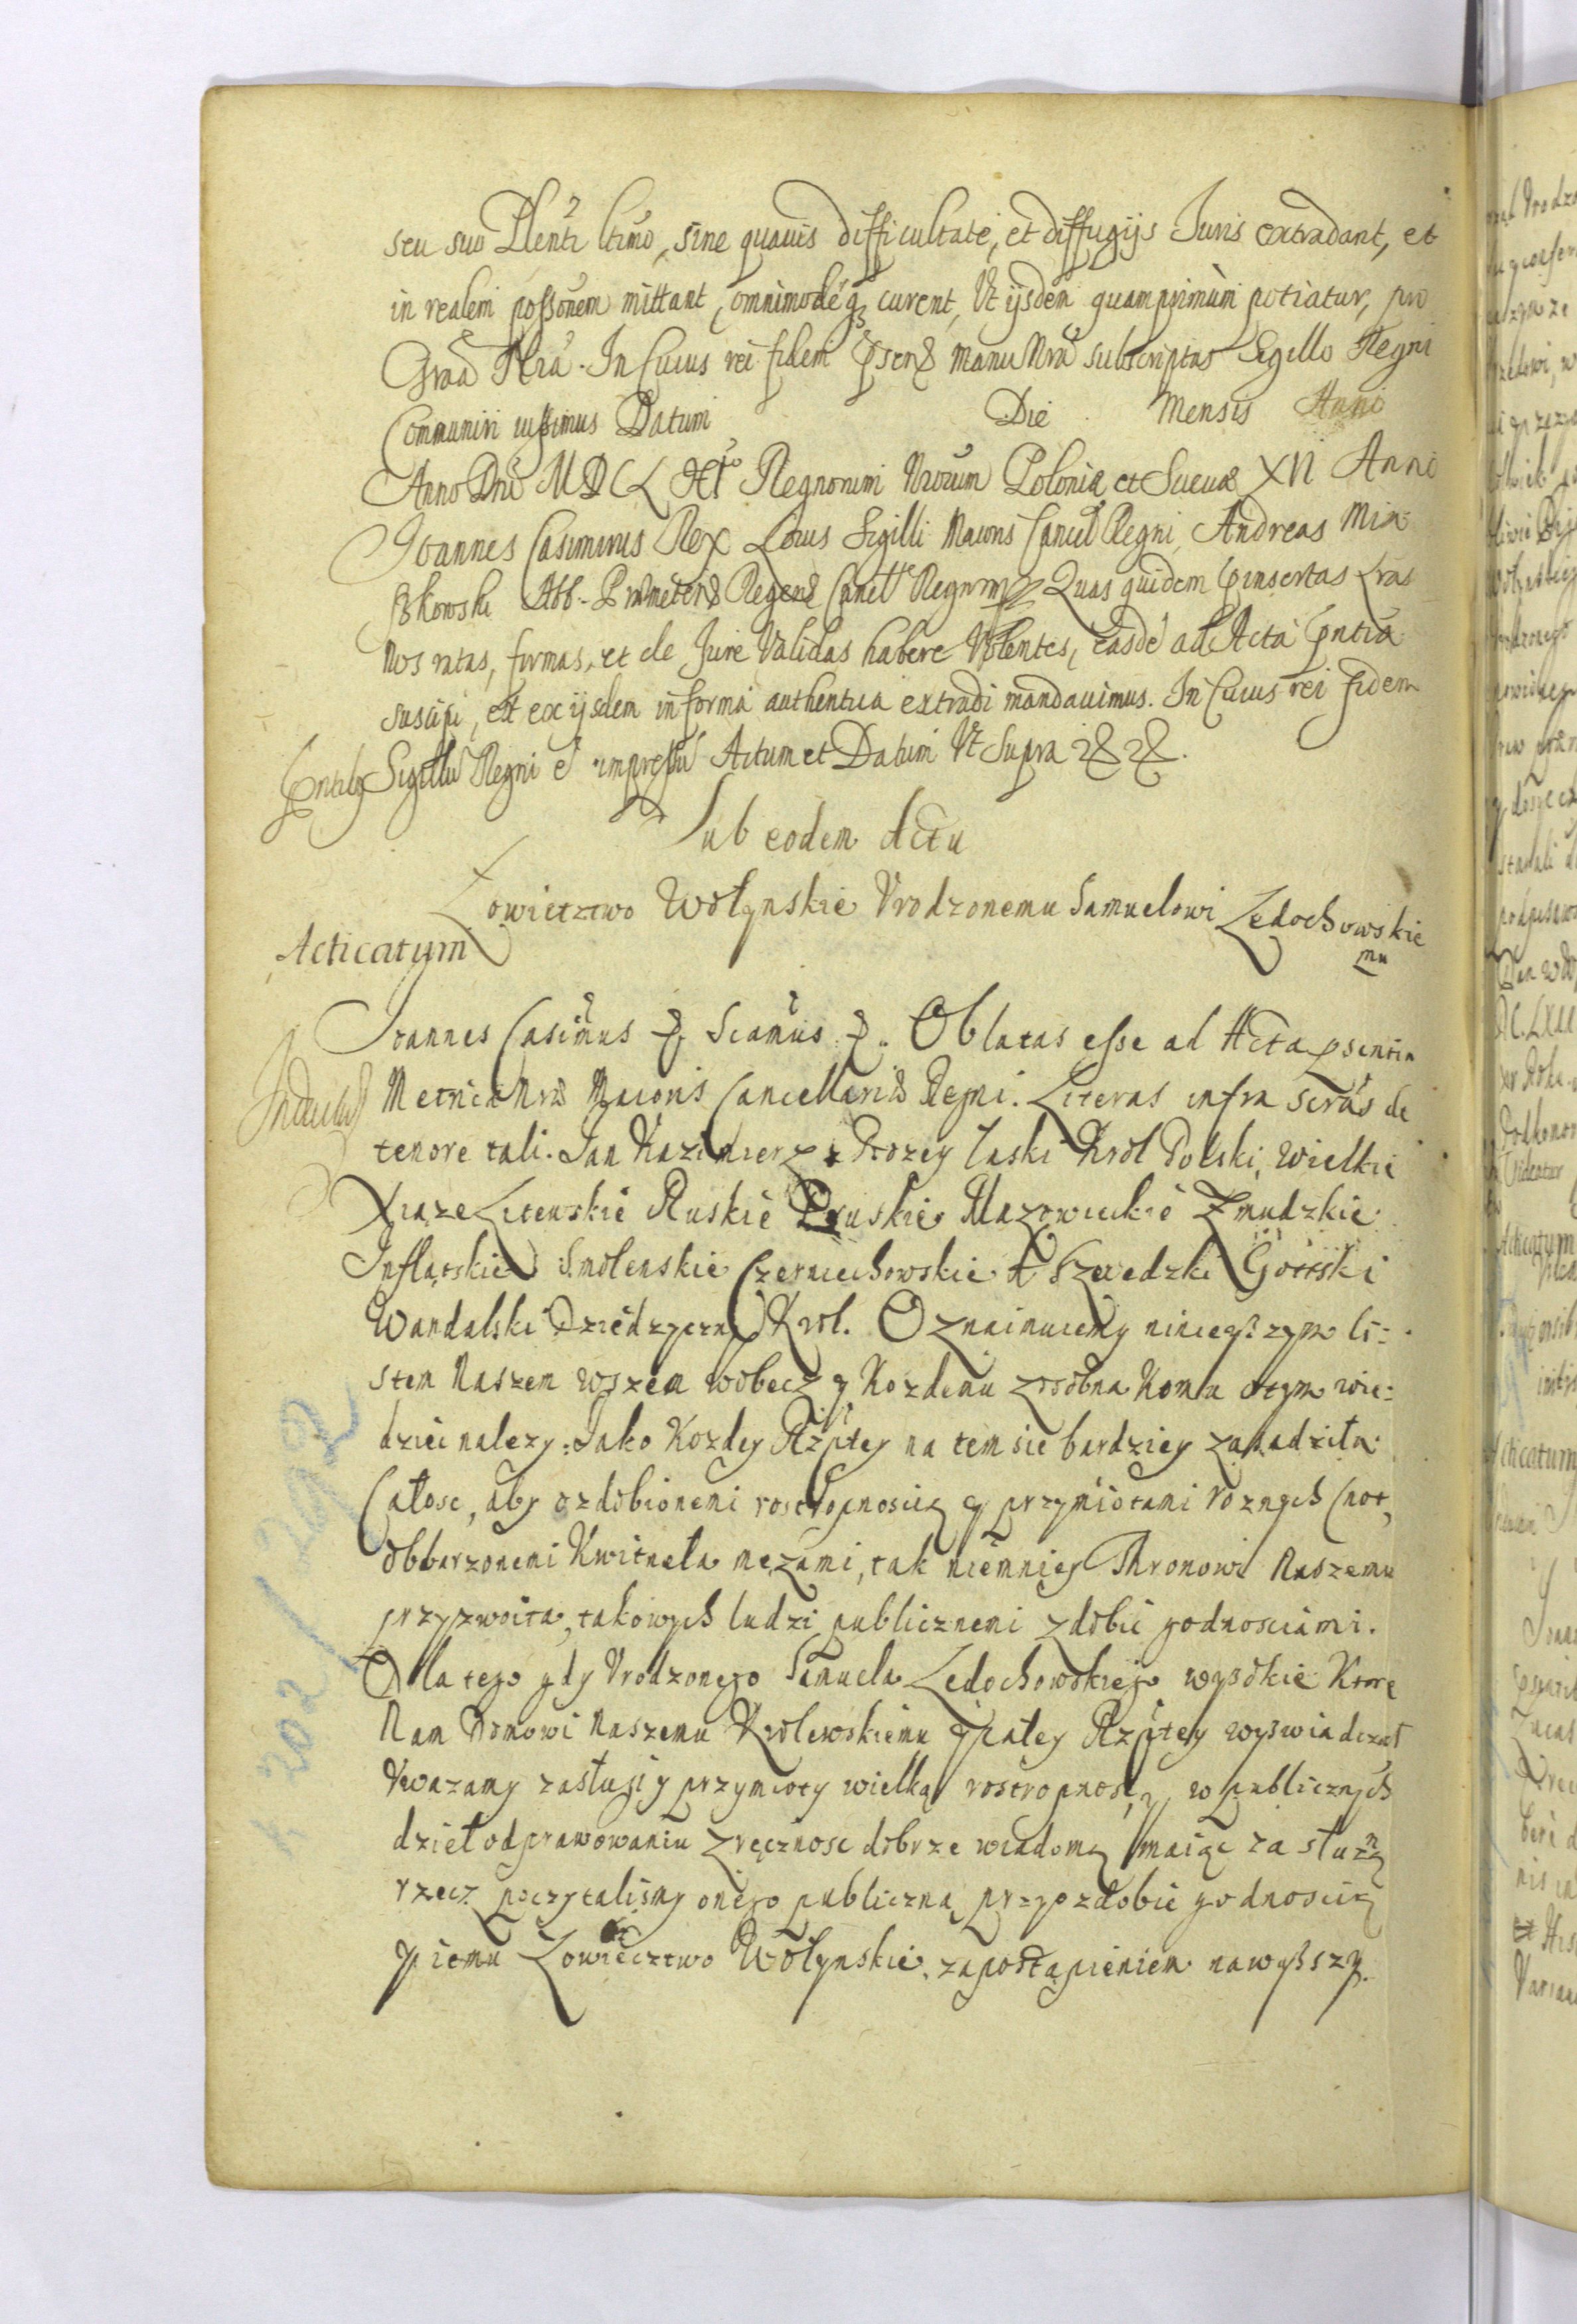 seu suo Plenti ltimo, sine quavis difficultate, et diffugijs Iuris extradant, et
in realem possonem mittant, omnimodeq3 curent, Ut ijsdem quamprimum potiatur, pro
Graa Nra. In Cuius rei fidem manu Nra subscriptas Sigillo Regni
Communiri iussimus Datum Die Mensis Anni
Anno Dni MDCL Regnorum Nrorum Poloniæ et Sueciæ XII Anno
Ioannes Casimirus Rex Locus Sigilli Maioris Cancel Regni, Andreas Mia
skowski Abb. Regens Regni Quas quidem insertas Lras
Nos ratas, firmas, et de Iure Validas habere Volentes, easde ad Acta pntia
suscipi, et ex ijsdem in forma authentica extradi mandavimus. In Cuius rei fidem
pntibg Sigillu Regni e impressu Actum et Datum Ut Supra
Sub eodem Actu
Łowiectwo Wołynskie Urodzonemu Samuelowi Ledochowskie
mu
Acticatum
Ioannes Casimus Sigmus Oblatas esse ad Acta psentia
Metrices Nræ Maioris Cancellariæ Regni. Literas infra scras de
tenore tali. Jan Kazimierz z Bozey laski Krol Polski, wielkie
Xiąze Litewskie Ruskie Pruskie Mazowieckie Zmudzkie
Inflątskie Smolenskie Czerniechowskie A Szwedzki Gottski
Wandalski Dziedzyczny Krol. Oznaimuiemy ninieyszym li:
stem Naszem wszem wobecz y Kozdemu zosobna Komu otym wie:
dziec nalezy: Jako Kozdey Rzptey na tem sie bardziey zasadziła
Całosc, aby ozdobionemi rostropnoscią y przymiotami roznych Cnot,
obbarzonemi Kwitneła mężami, tak niemniey Thronowi Naszemu
przyzwoita, takowych ludzi publicznemi zdobic godnosciami.
Dla tego gdy Urodzonego Samuela Ledochowskiego wysokie Ktore
Nam Domowi Naszemu Krolewskiemu y całey Rzptey wyswiadczał
Uwazamy zasługi y przymioty wielką rostropnosc, y w publicznych
dzieł odprawowaniu zręcznosc dobrze wiadomą maiąc za słuzną
rzecz poczytalismy onego publiczną przyozdobic godnoscią
y iemu Łowiecztwo Wołynskie, zapostąpieniem na wyższy.
k 202 /